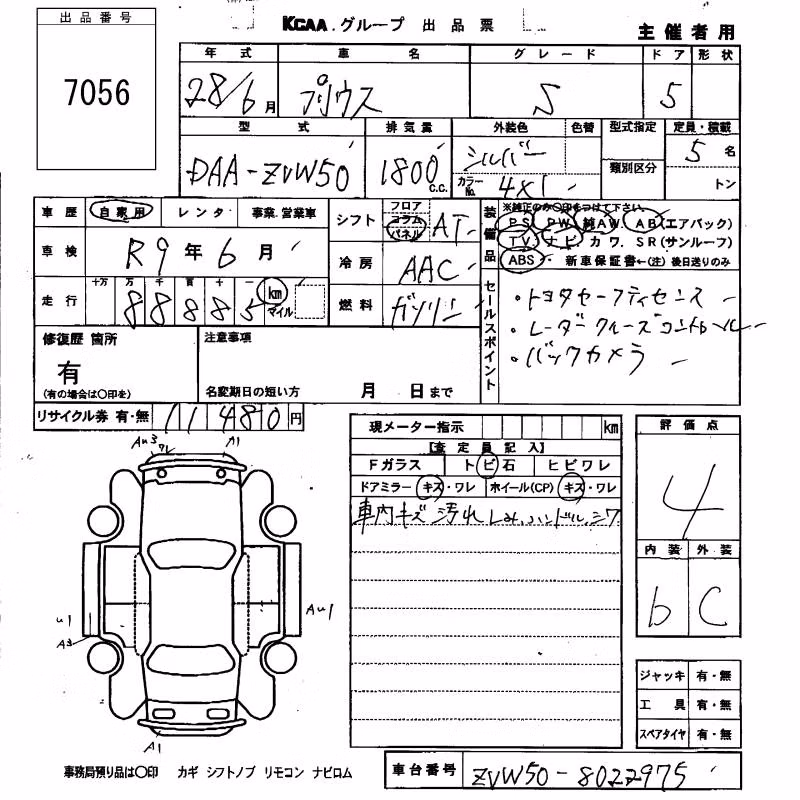 出品番号
7056
KCAA.グループ 出品票
主催者用
年式 車名 グレード ドア 形状
28/6月 プリウス S 5
型式 排気量 外装色 色替 型式指定 定員・積載
DAA-ZVW50 1800 c.c. シルバー 5名
類別区分
カラーNo. 4X1 トン
車歴 自家用 レンタ 事業.営業車
シフト フロア コラム パネル AT
装備品 ※純正のみ○印をつけて下さい。
PS PW 純AW. AB(エアバック)
TV. ナビ カワ. SR(サンルーフ)
ABS 新車保証書←(注)後日送りのみ
車検 R9年6月
冷房 AAC
走行 十万 万 千 百 十 一 km マイル
88885
燃料 ガソリン
セールスポイント
・トヨタセーフティセンス
・レーダークルーズコントロール
・バックカメラ
修復歴 箇所
有
(有の場合は○印を)
注意事項
名変期日の短い方 月 日まで
リサイクル券 有・無 11480円
現メーター指示 km
【査定員記入】
Fガラス トビ石 ヒビワレ
ドアミラー キズ・ワレ ホイール(CP) キズ・ワレ
車内キズ汚れ しみ.ハンドル.シワ
評価点
4
内装 外装
b C
Au3 ワレ A1
U1 Au1
A3
A1
ジャッキ 有・無
工具 有・無
スペアタイヤ 有・無
事務局預り品は○印 カギ シフトノブ リモコン ナビロム
車台番号 ZVW50-8022975